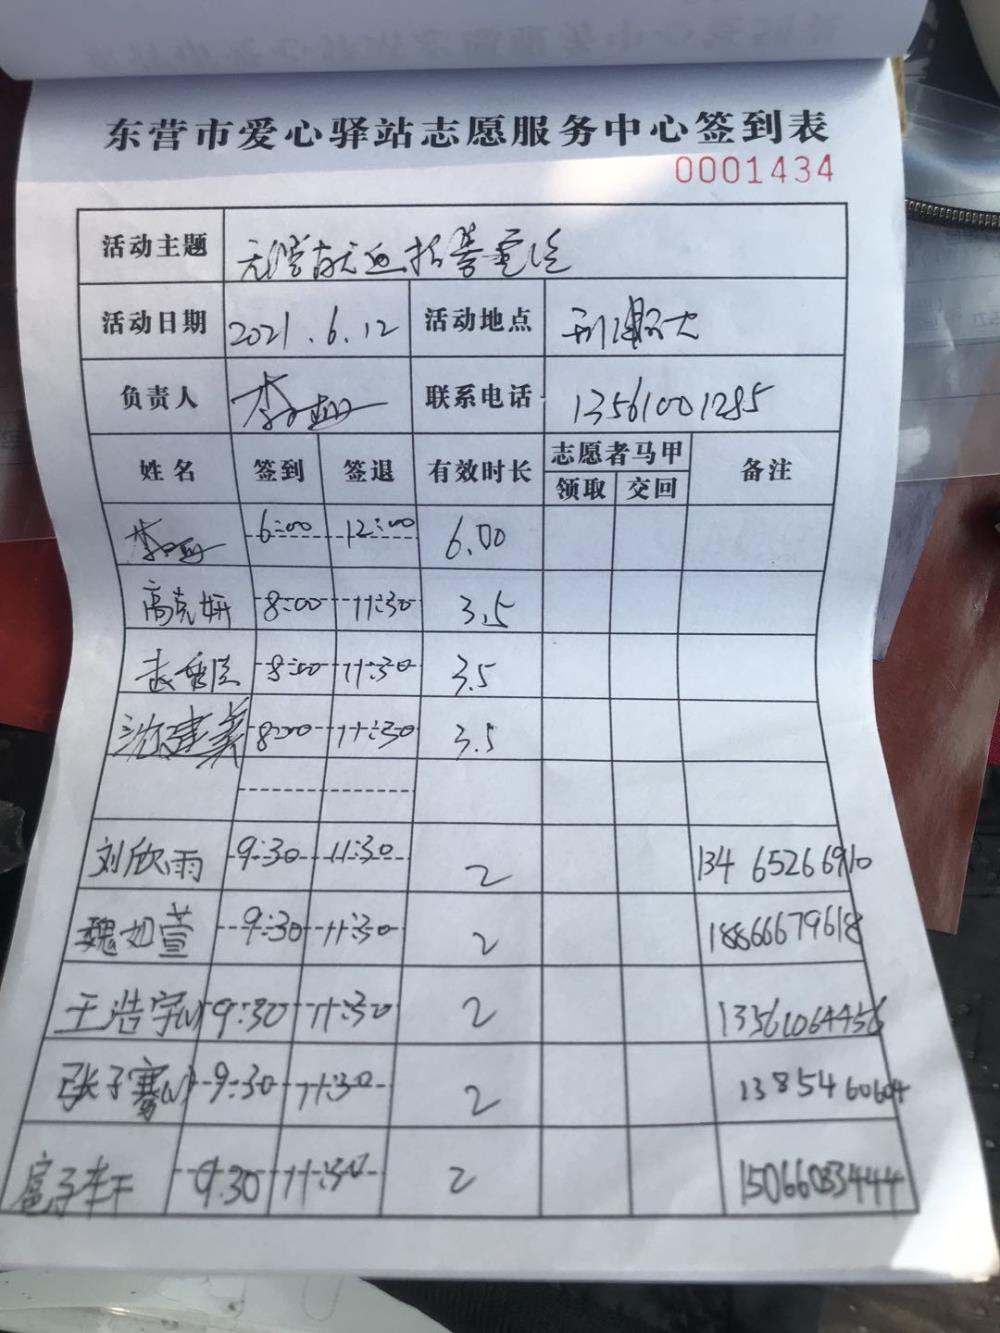 东营市爱心驿站志愿服务中心签到表
0001434
活动主题
活动日期 2021.6.12 活动地点
负责人 联系电话 13561001285
姓名 签到 签退 有效时长 志愿者马甲 备注
领取 交回
6:00 12:00 6.00
高克妍 8:00 11:30 3.5
8:00 11:30 3.5
沈建义 8:00 11:30 3.5
刘欣雨 9:30 11:30 2 13465266910
魏如萱 9:30 11:30 2 18866679618
王浩宇 9:30 11:30 2 13561064456
张子骞 9:30 11:30 2 1385460604
扈子轩 9:30 11:30 2 15066083444